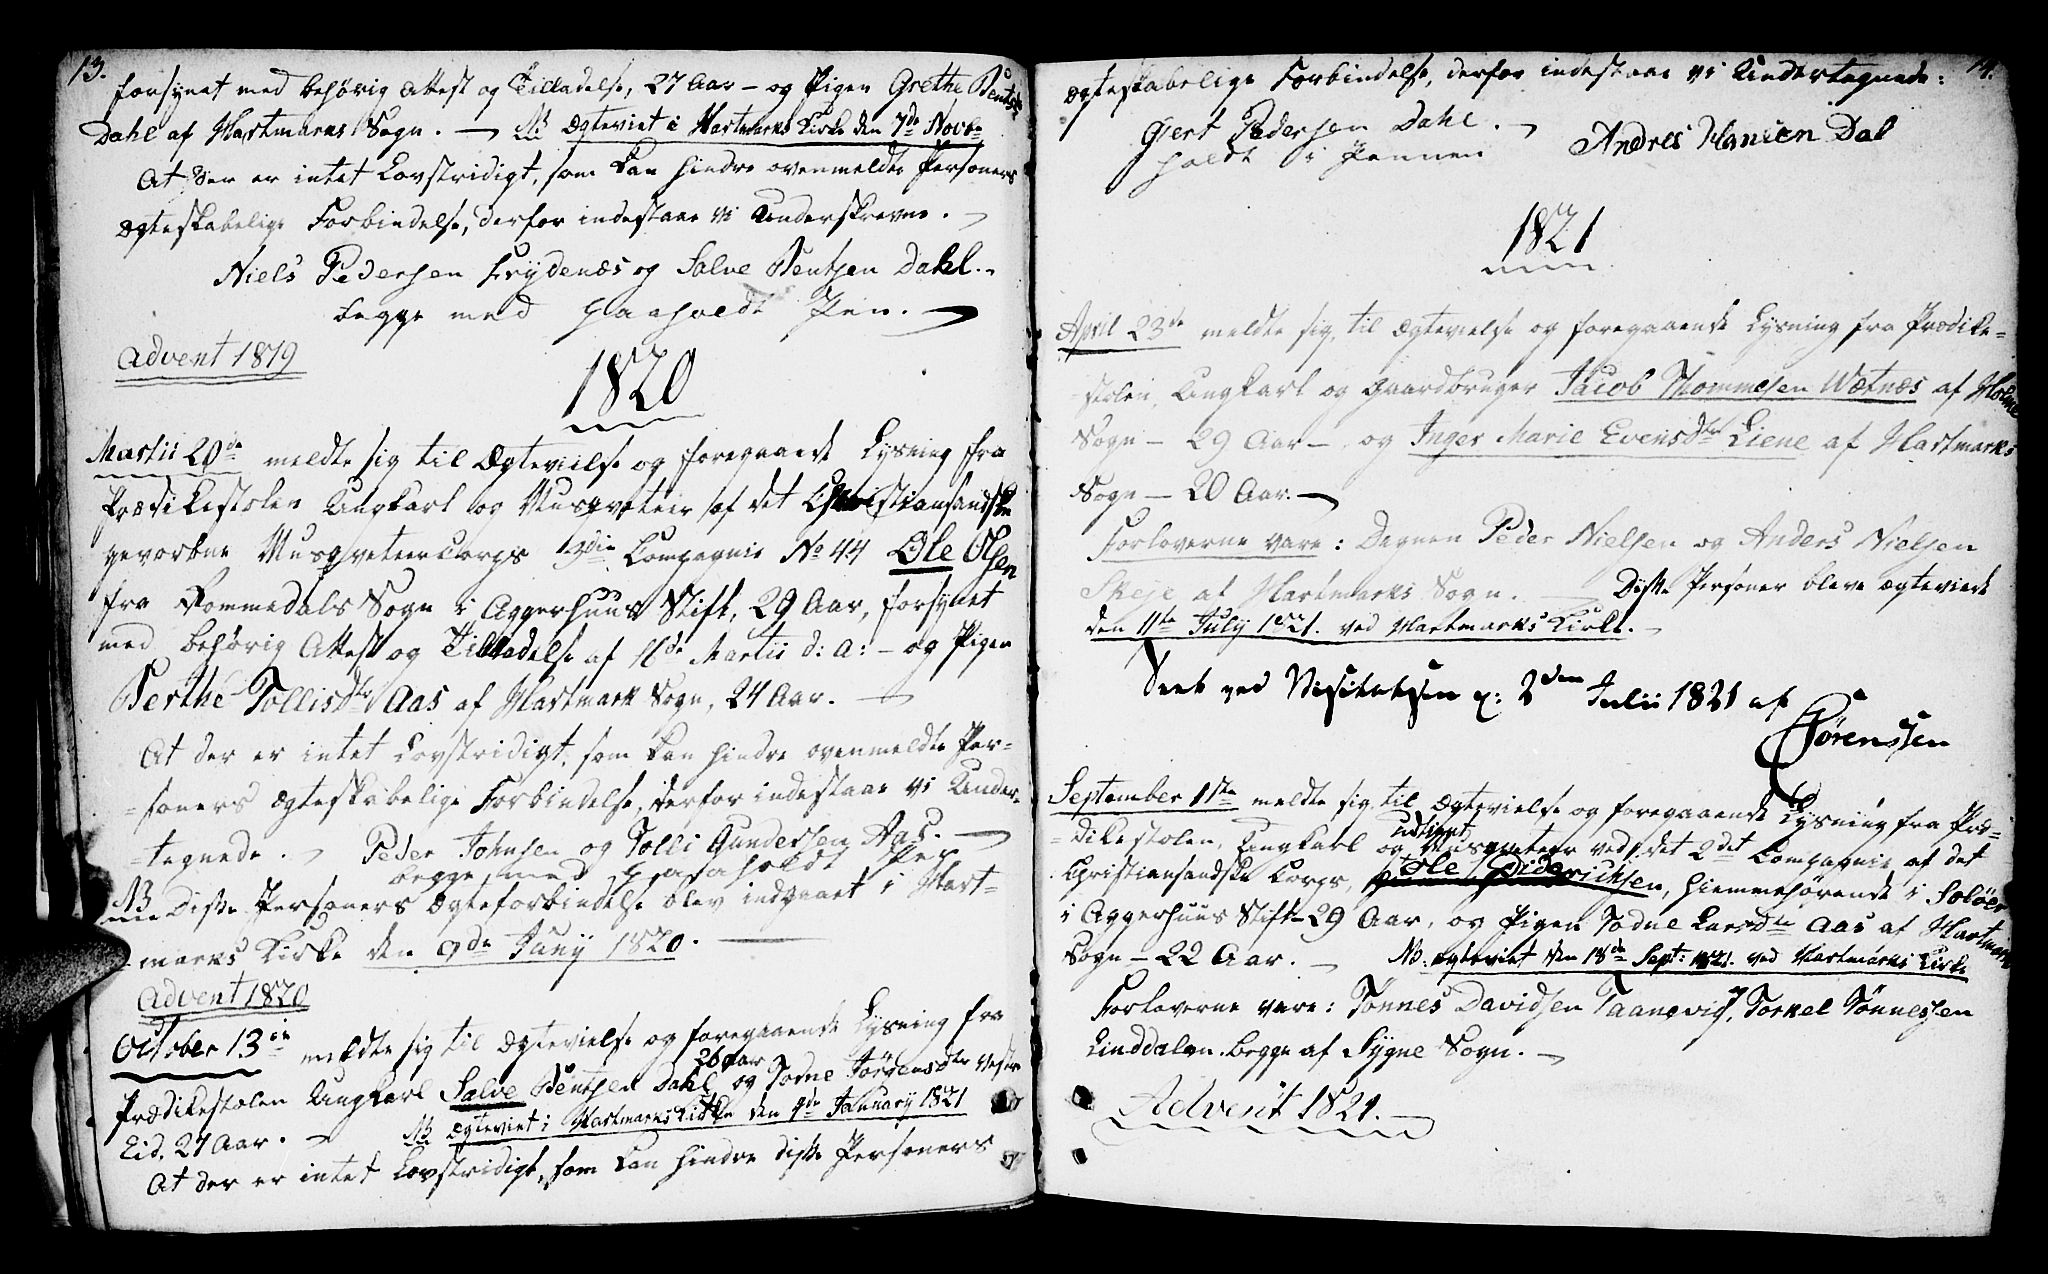 13.
forsynet med behørig Attest og Tilladelse, 27 Aar – og Pigen Grethe Bentsdr
Dahl af Hartmarks Sogn. – NB Ægteviet i Hartmarks Kirke den 7de Novb.
At der er intet Lovstridigt, som kan hindre ovenmeldte Personers
ægteskabelige Forbindelse, derfor indestaae vi Underskrevne. –
Niels Pedersen Frydenæs og Salve Bentsen Dahl. –
begge med paaholdt Pen. –
Advent 1819
1820
Martii 20de meldte sig til Ægtevielse og foregaaende Lysning fra
Prædikestolen Ungkarl og Musqveteir af det Christiansandske
gevorbne Musqveteer Corps 3die Compagnie No 44 Ole Olsen
fra Rommedals Sogn i Aggerhuus Stift, 29 Aar, forsynet
med behørig Attest og Tilladelse af 16de Martii d: a: – og Pigen
Berthe Tollisdtr Aas af Hartmark Sogn, 24 Aar. –
At der er intet Lovstridigt, som kan hindre ovenmeldte Per-
-soners ægteskabelige Forbindelse, derfor indestaae vi Under-
-tegnede. – Peder Johnsen og Tolli Gundersen Aas. –
begge med paaholdt Pen
NB Disse Personers Ægteforbindelse blev indgaaet i Hart-
marks Kirke den 9de Juny 1820. –
Advent 1820
October 13de meldte sig til Ægtevielse og foregaaende Lysning fra
Prædikestolen Ungkarl Salve Bentsen Dahl 26 Aar og Todne Jörgensdtr Vestre
Eid, 27 Aar. – NB Ægteviet i Hartmarks Kirke den 4de January 1821
At der er intet Lovstridigt, som kan hindre disse Personers
14.
ægteskabelige Forbindelse, derfor indestaae vi Undertegnede:
Giert Pedersen Dahl. – Andres Hansen Dal
holdt i Pennen
1821
April 23de meldte sig til Ægtevielse og foregaaende Lysning fra Prædike-
-stolen, Ungkarl og Gaardbruger Jacob Thommesen Wætnæs af Holme
Sogn – 29 Aar – og Inger Marie Evensdtr Liene af Hartmarks
Sogn – 20 Aar. –
Forloverne vare: Degnen Peder Nielsen og Anders Nielsen
Skeje af Hartmarks Sogn. – Disse Personer bleve ægteviede
den 11te July 1821. ved Hartmarks Kirke. –
Seet ved Visitatsen d: 2den Julii 1821 af
Sørenssen
September 1ste meldte sig til Ægtevielse og foregaaende Lysning fra Præ-
-dikestolen, Ungkarl og udtient Musqveteer ved det 2det Compagnie af det
Christiansandske Corps, Ole Dideriksen, hiemmehørende i Soløer
i Aggerhuus Stift – 29 Aar, og Pigen Todne Larsdtr Aas af Hartmark
Sogn – 22 Aar. – NB. Ægteviet den 18de Sept: 1821. ved Hartmarks Kirke
Forloverne vare: Tönnes Davidsen Taanevig, Torkel Tönnessen
Linddalen. begge af Sygne Sogn. –
Advent 1821. –